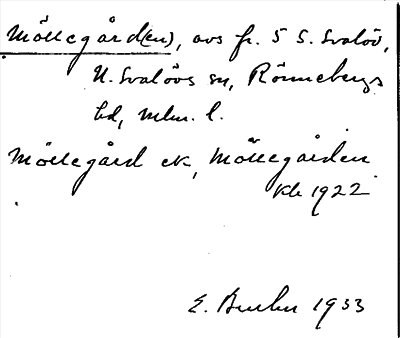 Möllegård(en), avs fr. 5 S. Svalöv,
N. Svalövs sn, Rönnebergs
hd, Mlm. l.
Möllegård ek, Möllegården
kb 1922
E. 1933